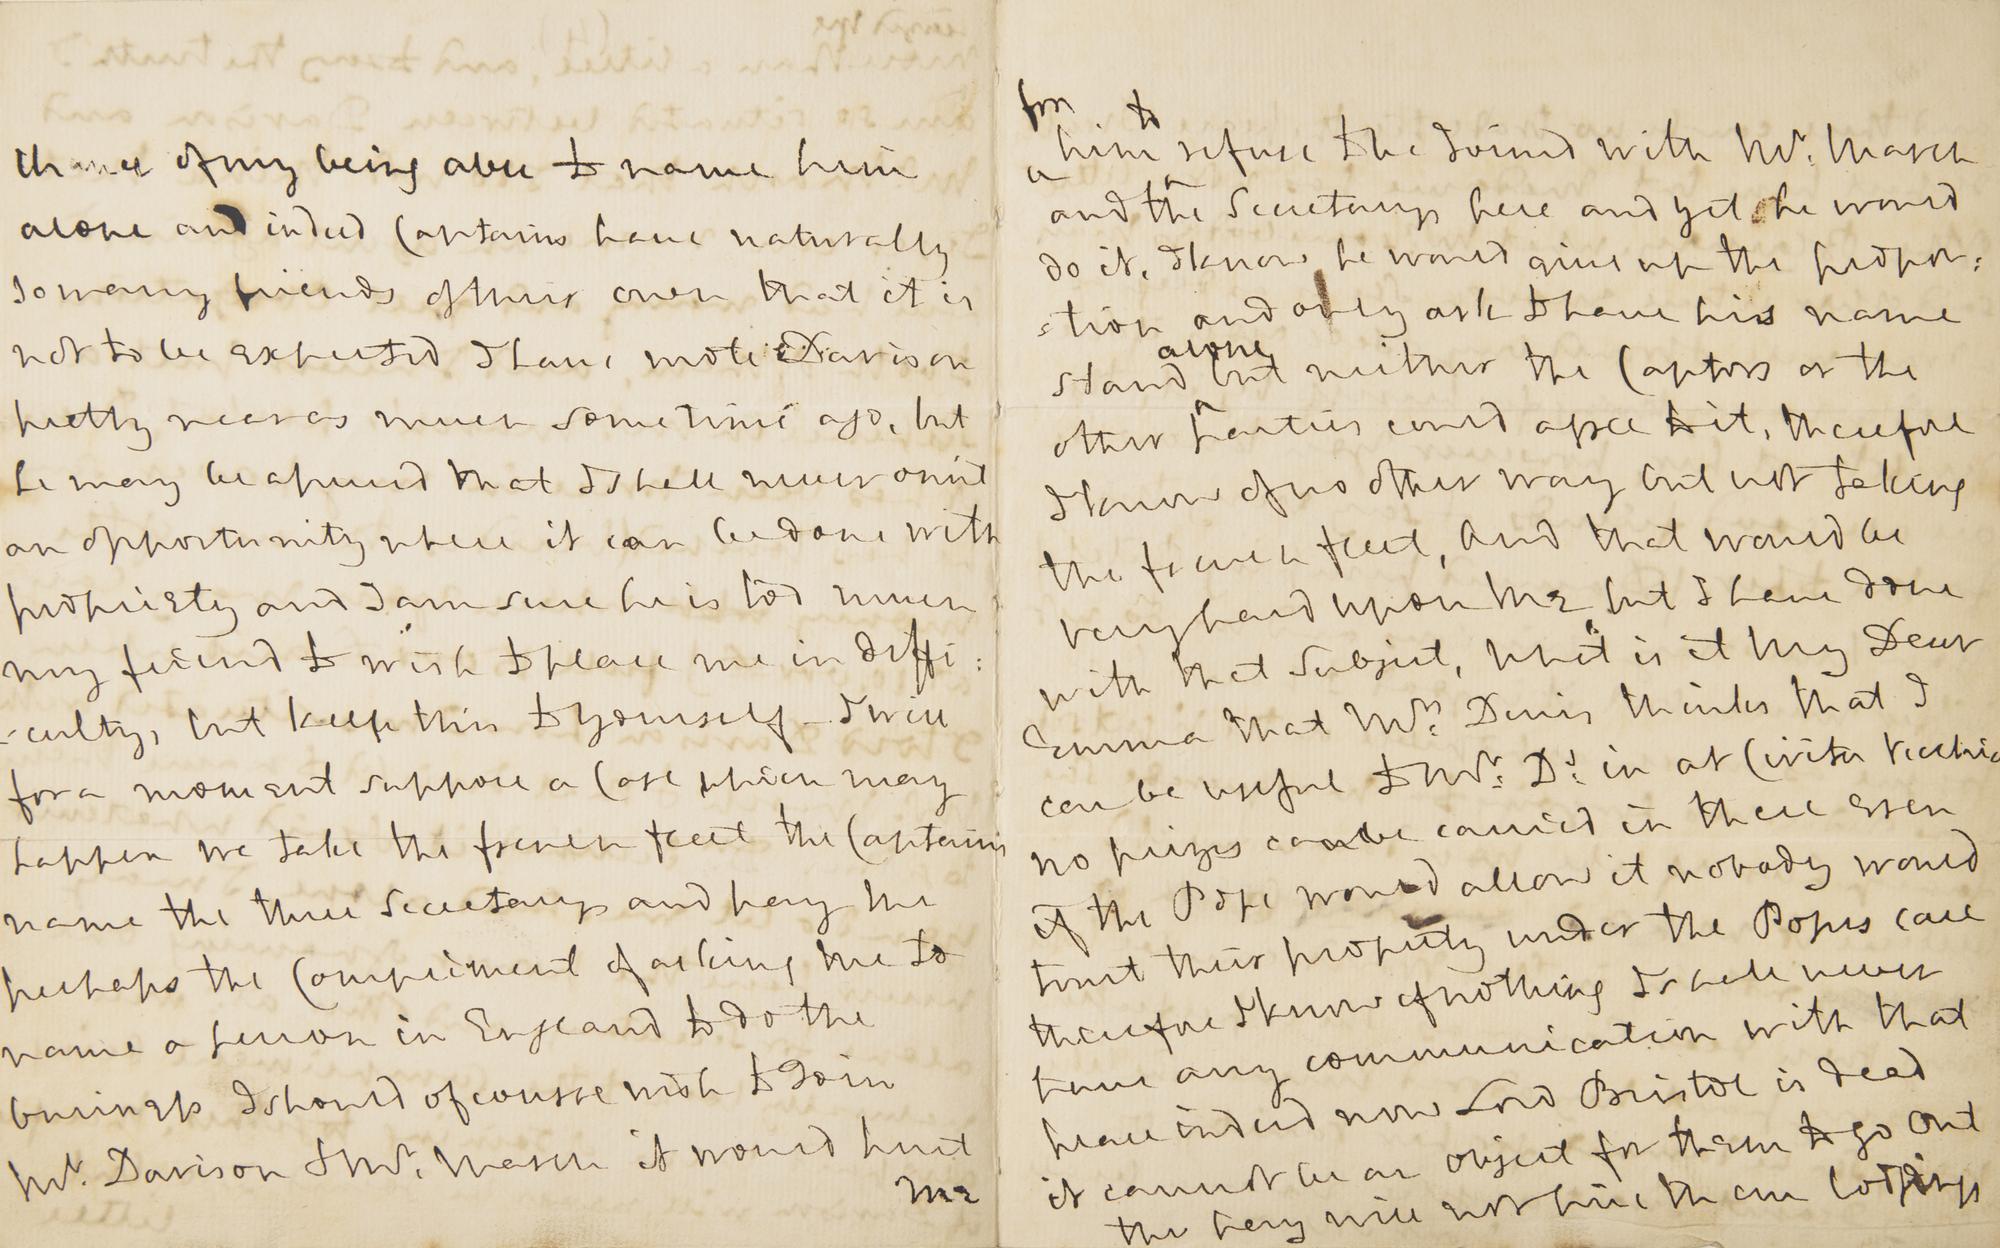 chance of my being able to name him
alone and indeed Captains have naturally
so many friends of their own that it is
not to be expected I have wrote Davison
pretty near as much some time ago, but
he may be assured that I shall never omit
an opportunity where it can be done with
propriety and I am sure he is too much
my friend to wish to place me in diffi:
-culty, but keep this to yourself – I will
for a moment suppose a Case which may
happen we take the french fleet the Captains
name the three Secretarys and pay me
perhaps the Compliment of asking me to
name a person in England to do the
business I should of course wish to Join
Mr. Davison & Mr. Marsh it would hurt
me
for to
him refuse to be Joined with Mr. Marsh
a
and the Secretarys here and yet he would
do it, I know he would give up the propor:
:tion and only ask to have his name
alone
stand but neither the Captors or the
other parties could agree to it, therefore
I know of no other way but not taking
the french fleet, and that would be
very hard upon me but I have done
with that Subject, what is it My Dear
Emma that Mrs. Denis thinks that I
can be useful to Mr. D: in at Civita Vecchia
no prizes can be carried in there even
if the Pope would allow it nobody would
trust their property under the Popes care
therefore I know of nothing I shall never
have any communication with that
place indeed now Lord Bristol is dead
it cannot be an object for them to go out
the pay will not hire them lodgings